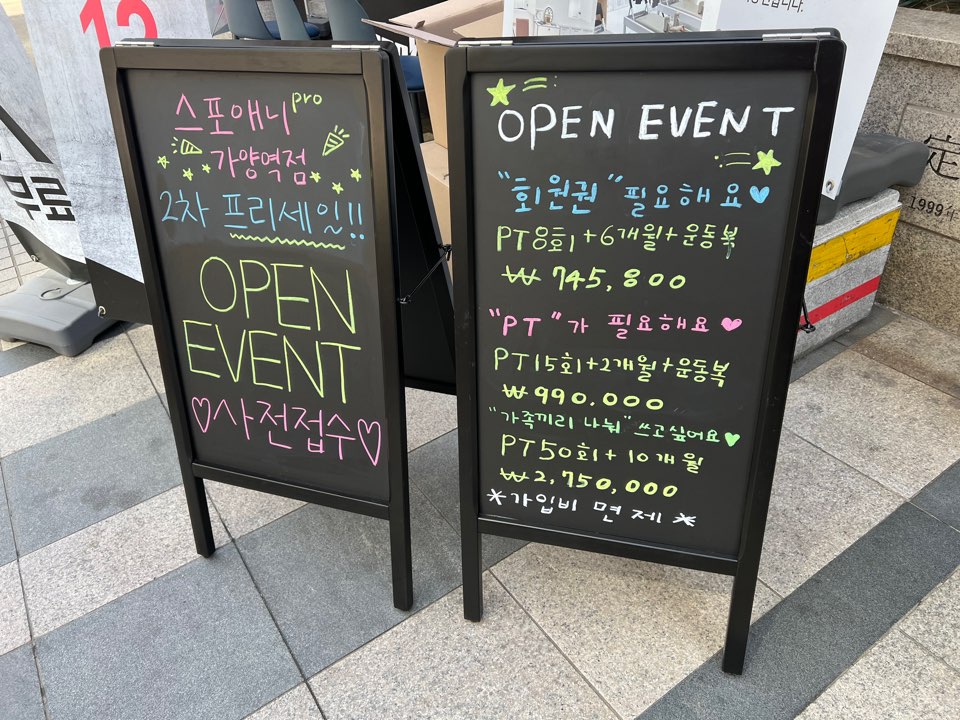 스포애니 pro
가양역점
2차 프리세일!!
OPEN
EVENT
♡사전접수♡
OPEN EVENT
"회원권" 필요해요♥
PT8회+6개월+운동복
₩ 745,800
"PT"가 필요해요♥
PT15회+2개월+운동복
₩990.000
"가족끼리 나눠" 쓰고싶어요♥
PT50회+10개월
₩2,750,000
*가입비 면제*
12
무료
定
1999